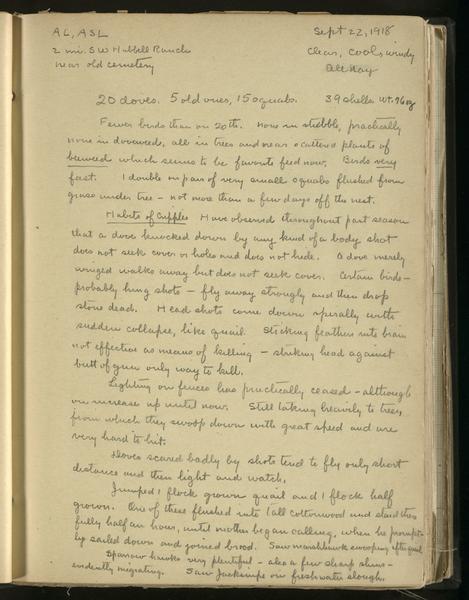 AL, ASL Sept 22, 1918
2 mi. SW Hubbell Ranch Clear, cool & windy
near old cemetery All day
20 doves. 5 old ones, 15 squabs. 39 shells Wt. 76 oz
Fewer birds than on 20th. None in stubble, practically
none in doveweed, all in trees and near scattered plants of
beeweed which seems to be favorite feed now. Birds very
fast. 1 double on pair of very small squabs flushed from
grass under tree – not more than a few days off the nest.
Habits of Cripples Have observed throughout past season
that a dove knocked down by any kind of a body shot
does not seek cover or holes and does not hide. A dove merely
winged walks away but does not seek cover. Certain birds –
probably lung shots – fly away strongly and then drop
stone dead. Head shots come down spirally with
sudden collapse, like quail. Sticking feather into brain
not effective as means of killing – striking head against
butt of gun only way to kill.
Lighting on fences has practically ceased – although
on increase up until now. Still taking heavily to trees,
from which they swoop down with great speed and are
very hard to hit.
Doves scared badly by shots tend to fly only short
distance and then light and watch.
Jumped 1 flock grown quail and 1 flock half
grown. One of these flushed into tall cottonwood and staid there
fully half an hour, until mother began calling, when he prompt-
ly sailed down and joined brood. Saw marshhawk swooping after quail
Sparrow hawks very plentiful – also a few sharp shins –
evidently migrating. Saw Jacksnipe on freshwater slough.